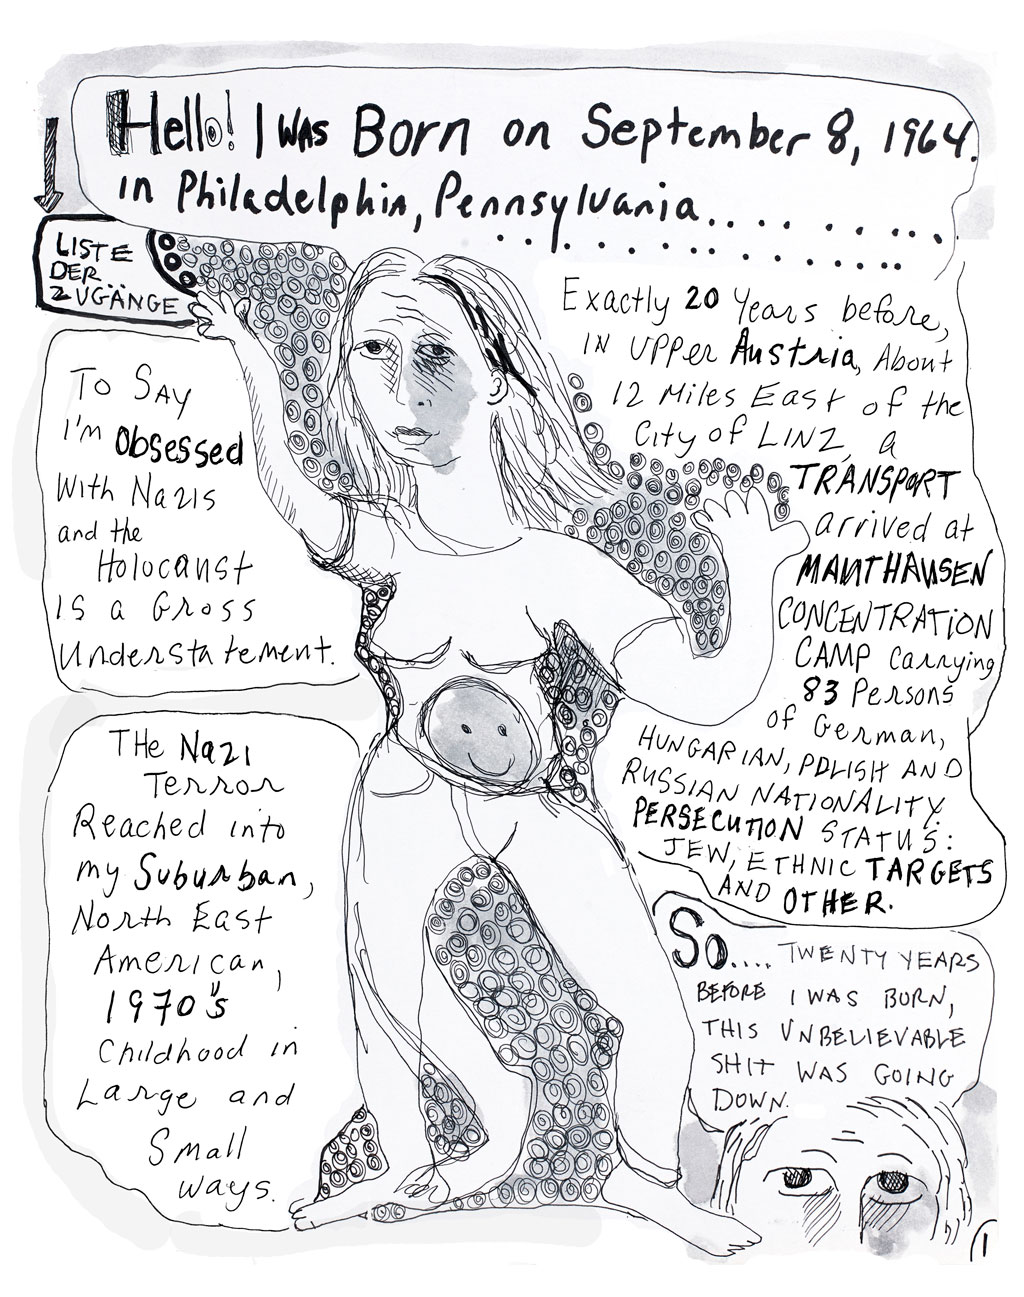 Hello! I WAS Born on September 8, 1964.
in Philadelphia, Pennsylvania..........
LISTE
DER
ZUGÄNGE
Exactly 20 Years before,
IN UPPer Austria, About
12 Miles East of the
City of LINZ, a
TRANSPORT
arrived at
MAUTHAUSEN
CONCENTRATION
CAMP carrying
83 Persons
of German,
HUNGARIAN, POLISH AND
RUSSIAN NATIONALITY.
PERSECUTION STATUS:
JEW, ETHNIC TARGETS
AND OTHER.
To SAY
I'm Obsessed
With Nazis
and the
Holocaust
IS a Gross
Understatement.
THe Nazi
Terror
Reached into
my Suburban,
North East
American,
1970's
Childhood in
Large and
Small
ways.
So.... TWENTY YEARS
BEFORE I WAS BORN,
THIS UNBELIEVABLE
SHIT WAS GOING
DOWN.
1